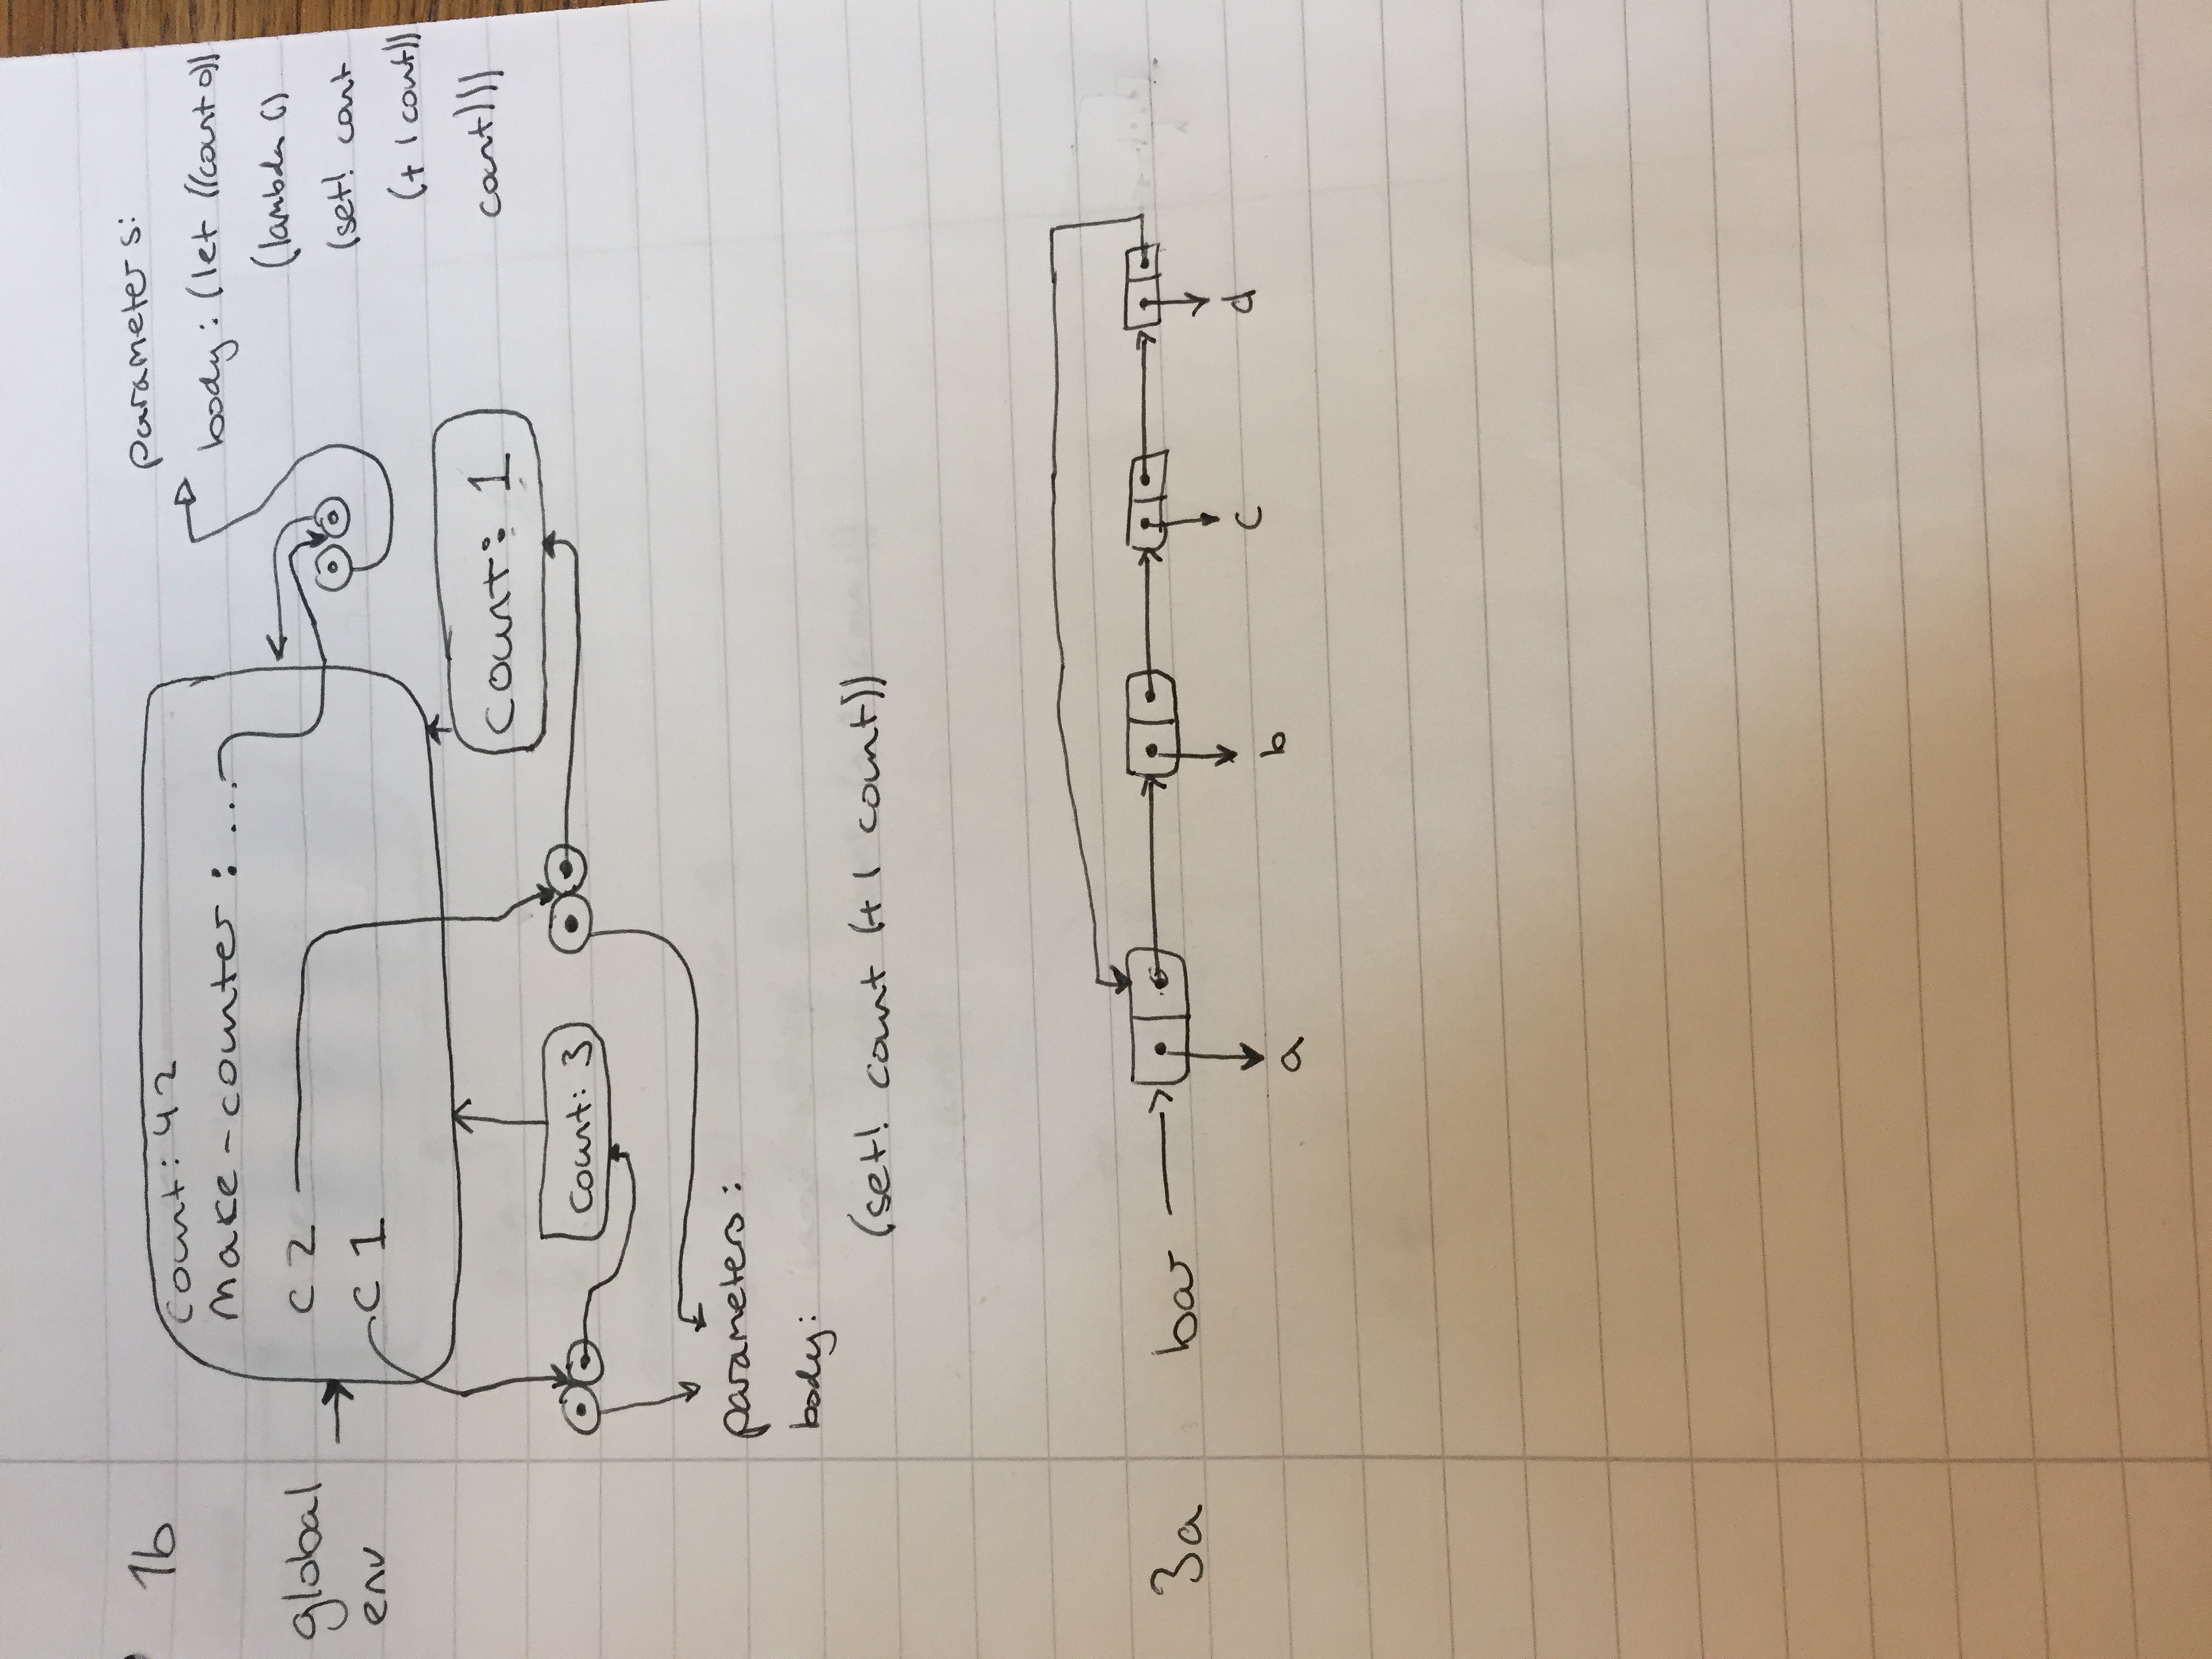 1b
global
env
count: 42
make-counter: ...
c2
c1
parameters:
body: (let ((count 0))
(lambda ()
(set! count
(+ 1 count))
count)))
count: 3
count: 1
parameters:
body:
(set! count (+ 1 count))
3a
bar
a
b
c
d